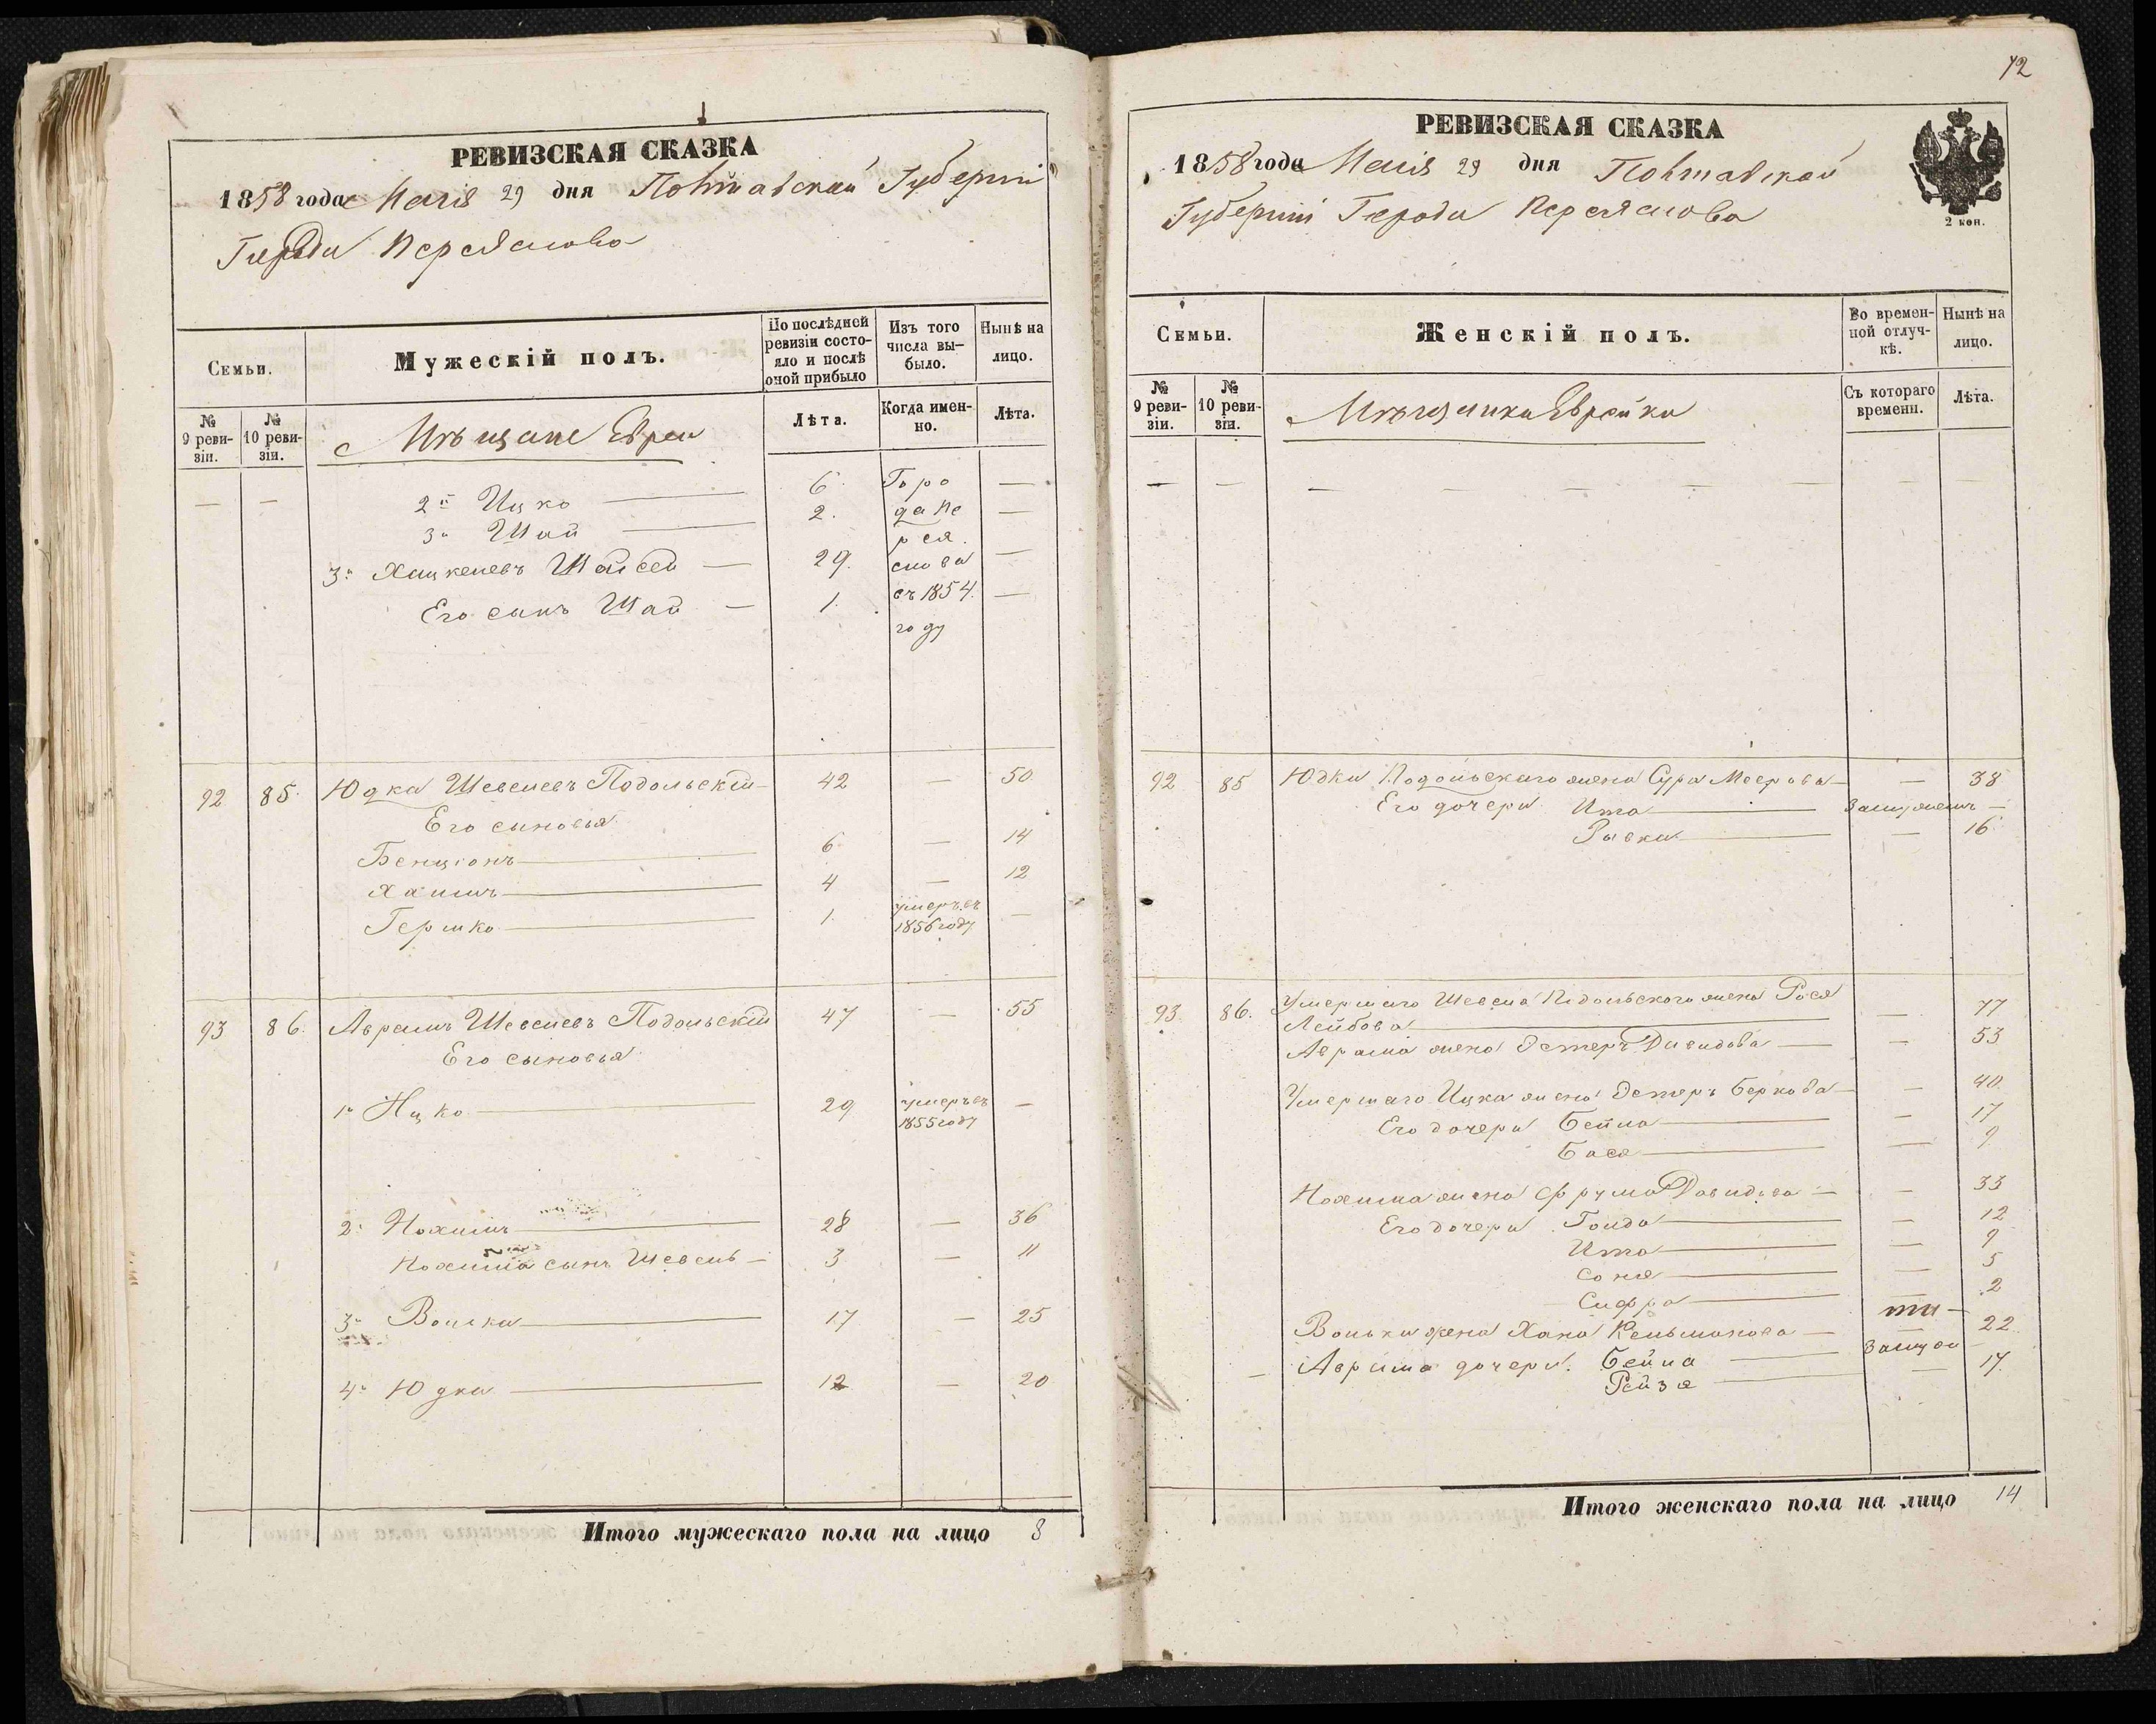 РЕВИЗСКАЯ СКАЗКА
1858 года Маія 29 дня Полтавской Губерніи
Города Переяслова
Семьи.
Мужескій полъ.
По послѣдней ревизіи состояло и послѣ оной прибыло
Изъ того числа выбыло.
Нынѣ на лицо.
№ 9 ревизіи.
№ 10 ревизіи.
Мѣщане Евреи
Лѣта.
Когда именно.
Лѣта.
— — 2й Ицко — 6. Горо —
3й Шай — 2. да Пе —
рея.
3й Хацкелевъ — 29. слова —
Его сынъ Шай — 1. въ 1854. —
году
92 85. Юдка Шевелевъ Подольскій — 42 — 50
Его сыновья
Бенціонъ — 6. — 14
Хаимъ — 4 — 12
Гершко — 1. умеръ въ 1856 году —
93 86. Аврамъ Шевелевъ Подольскій 47 — 55
Его сыновья
1й Ицко — 29 умеръ въ 1855 году —
2й Нохимъ — 28 — 36
Нохима сынъ Шевель — 3 — 11
3й Волька — 17 — 25
4й Юдка — 12 — 20
Итого мужескаго пола на лицо 8
72
РЕВИЗСКАЯ СКАЗКА
1858 года Маія 29 дня Полтавской
Губерніи Города Переяслова
2 коп.
Семьи.
Женскій полъ.
Во временной отлучкѣ.
Нынѣ на лицо.
№ 9 ревизіи.
№ 10 ревизіи.
Мѣщанки Еврейки
Съ котораго времени.
Лѣта.
— — — — — — — — —
92 85 Юдки Подольскаго жена Сура Меерова — — 38
Его дочери Ита — Замужемъ —
Рывка — — 16.
93. 86. Умершаго Шевеля Подольского жена Рося
Лейбова — — 77
Аврама жена Эстеръ Давидова — — 53
Умершаго Ицка жена Эстеръ Беркова — — 40.
Его дочери Бейла — — 17
Бася — — 9
Нохима жена Фрума Давидова — — 33
Его дочери Голда — — 12
Ита — — 9
Соня — — 5
Сифра — — 2
Вольки жена Хана Кельманова — — 22.
— Аврама дочери. Бейла — Замуж
Рейзя — — 17.
Итого женскаго пола на лицо 14